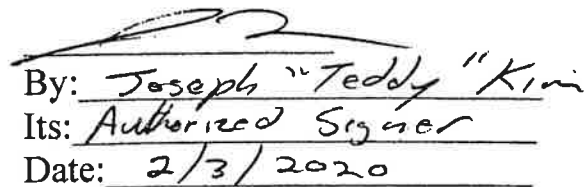 By: Joseph "Teddy" Kim
Its: Authorized Signer
Date: 2/3/2020